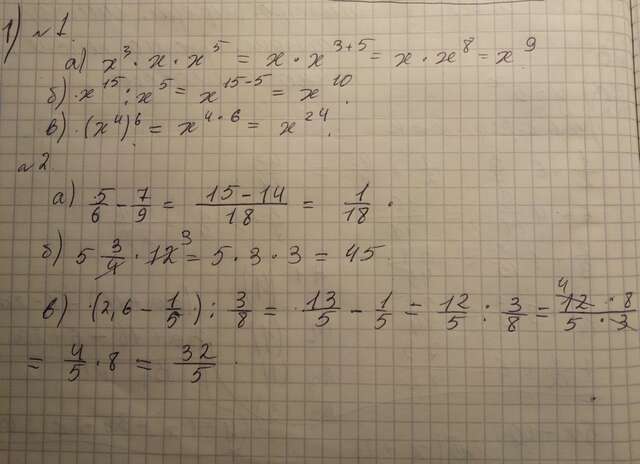 1) №1.
а) x³ · x · x⁵ = x · x³⁺⁵ = x · x⁸ = x⁹.
б) · x¹⁵ : x⁵ = x¹⁵⁻⁵ = x¹⁰.
в) · (x⁴)⁶ = x⁴·⁶ = x²⁴.
№2.
а) 5/6 − 7/9 = (15 − 14)/18 = 1/18.
б) 5 · 3/4 · 12 ³ = 5 · 3 · 3 = 45.
в) · (2,6 − 1/5) : 3/8 = 13/5 − 1/5 = 12/5 : 3/8 = (⁴12 · 8)/(5 · 3)
= 4/5 · 8 = 32/5.